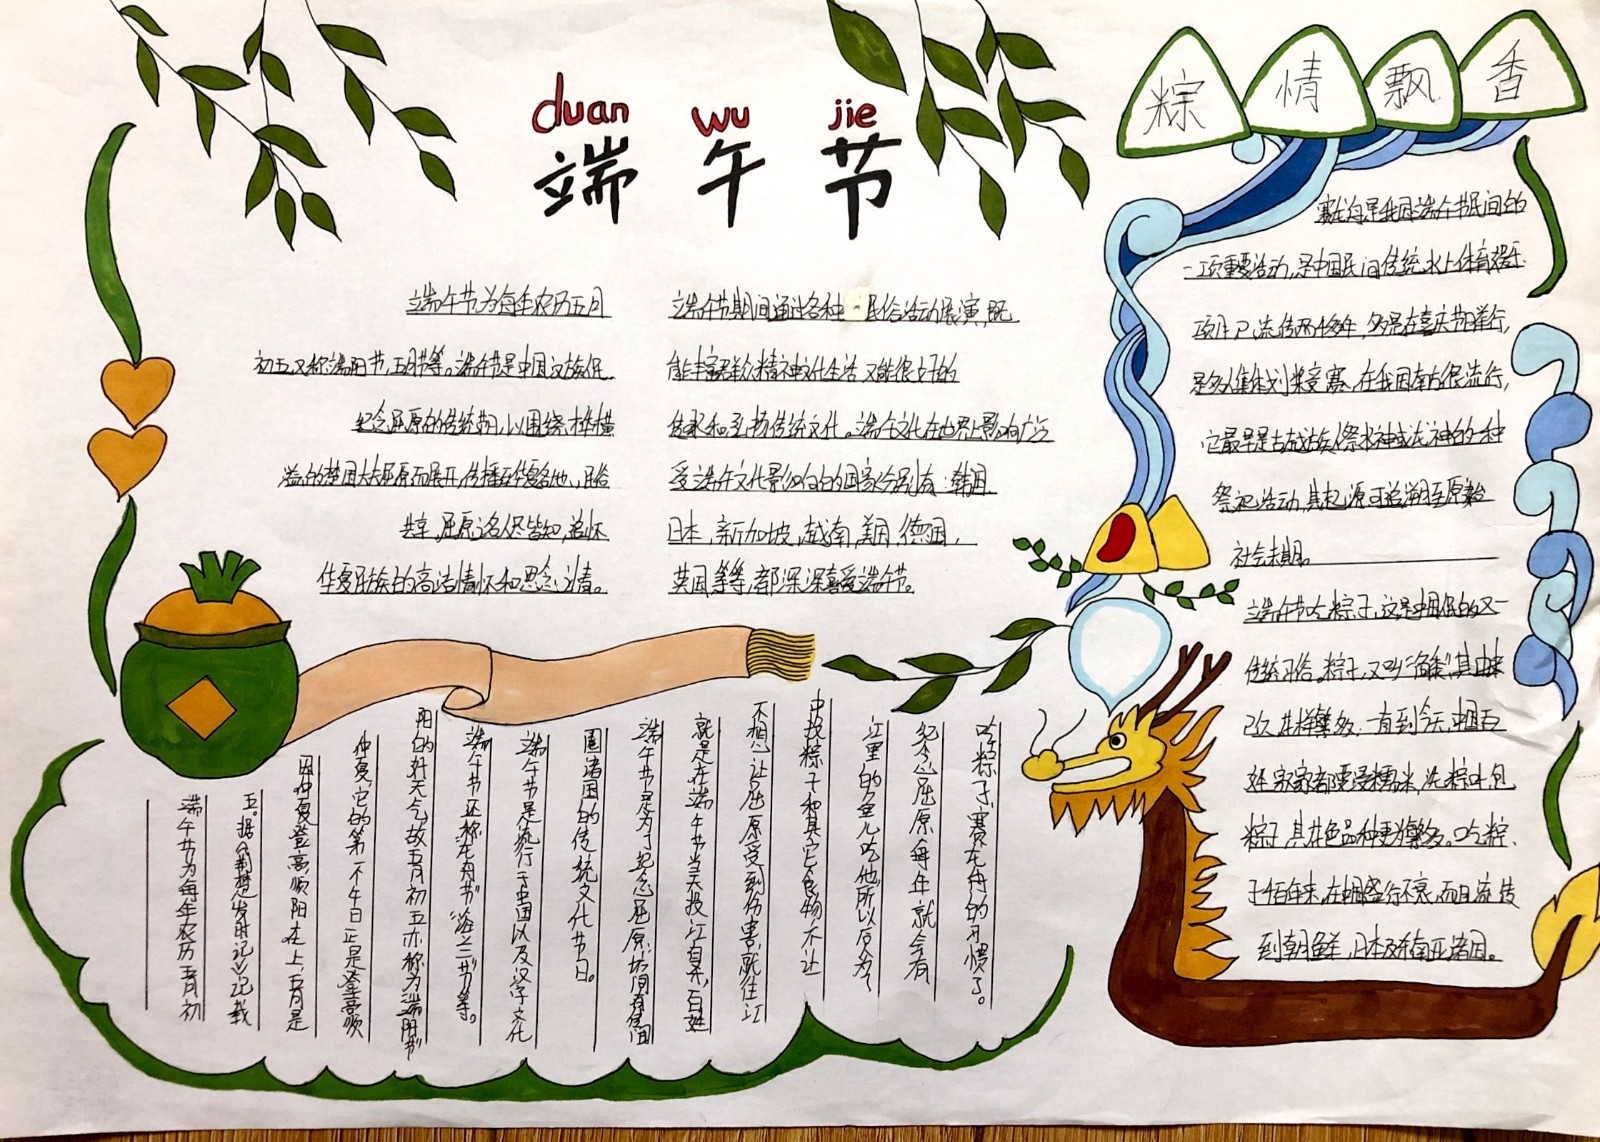 duan wu jie
端午节
粽情飘香
端午节为每年农历五月
初五,又称端阳节,五月节等。端午节是中国汉族人民
纪念屈原的传统节日,以围绕才华横
溢的楚国大夫屈原而展开,传播至华夏各地,民俗
共享,屈原之名人尽皆知,追怀
华夏民族的高洁情怀和思念之情。
端午节期间通过各种民俗活动展演,既
能丰富群众精神文化生活,又能很好的
传承和弘扬传统文化。端午文化在世界上影响广泛
受端午文化影响的国家分别有:韩国,
日本,新加坡,越南,美国,德国,
英国等等,都深深喜爱端午节。
赛龙舟是我国端午节民间的
一项重要活动,是中国民间传统水上体育娱乐
项目,已流传两千多年,多是在喜庆节日举行,
是多人集体划桨竞赛,在我国南方很流行,
它最早是古越族人祭水神或龙神的一种
祭祀活动,其起源可追溯至原始
社会末期。
端午节吃粽子,这是中国人民的又一
传统习俗。粽子,又叫“角黍”,其由来
已久,花样繁多。一直到今天,中国百
姓家家都要浸糯米,洗粽叶,包
粽子,其花色品种更为繁多。吃粽
子千百年来,在中国盛行不衰,而且流传
到朝鲜,日本及东南亚诸国。
端午节为每年农历五月初
五。据《荆楚岁时记》记载
因仲夏登高顺阳在上,五月是
仲夏,它的第一个午日正是登高顺
阳的好天气,故五月初五亦称为“端阳节”
端午节还称“龙舟节”“浴兰节”等。
端午节是流行于中国以及汉字文化
圈诸国的传统文化节日。
端午节是为了纪念屈原,坊间有传闻
就是在端午节当天投江自杀,百姓
不想让屈原受到伤害,就往江
中投粽子和其它食物,不让
江里的鱼儿吃他,所以后来为了
纪念屈原,每年就会有
吃粽子,赛龙舟的习惯了。